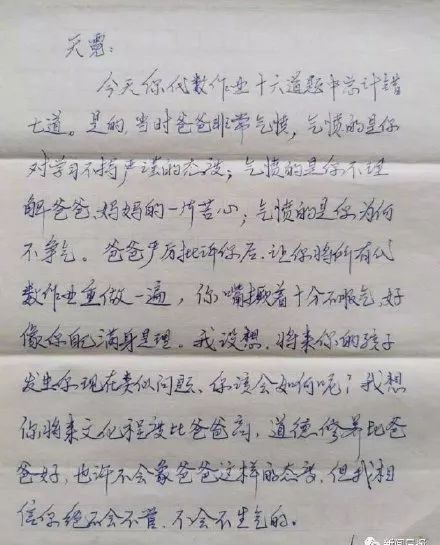 天霓:
今天你代数作业十六道题中总计错
七道。是的,当时爸爸非常气愤,气愤的是你
对学习不持严谨的态度;气愤的是你不理
解爸爸、妈妈的一片苦心;气愤的是你为何
不争气。爸爸严厉批评你后,让你将所有代
数作业重做一遍,你嘴撅着十分不服气,好
像你自己满身是理。我设想,将来你的孩子
发生你现在类似问题、你该会如何呢?我想
你将来文化程度比爸爸高,道德修养比爸
爸好,也许不会象爸爸这样的态度,但我相
信你绝不会不管、不会不生气的。
新闻晨报